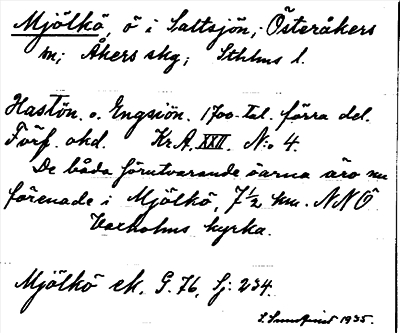 Mjölkö, ö i Saltsjön; Österåkers
sn; Åkers skg; Sthlms l.
Hastön o. Engsiön. 1700-tal. förra del.
Förf. okd. Kr.A. XXII. N:o 4.
De båda förutvarande öarna äro nu
förenade i Mjölkö, 7½ km. NNÖ
Vaxholms kyrka.
Mjölkö ek. G. 76. Sj: 234.
1935.